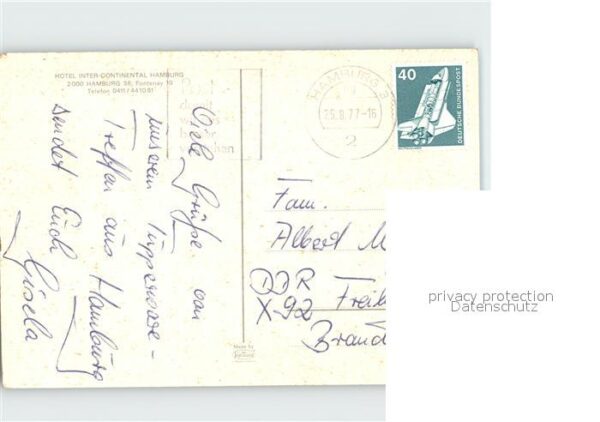 HOTEL INTER-CONTINENTAL HAMBURG
2000 HAMBURG 36, Fontenay 10
Telefon 0411/441081
HAMBURG
25.8.77-16
2
40
DEUTSCHE BUNDESPOST
Viele Grüße von
unserem Tupperware-
Treffen aus Hamburg
sendet Euch
Gisela
Fam.
Albert M
DDR
X92 Freib
Brand
privacy protection
Datenschutz